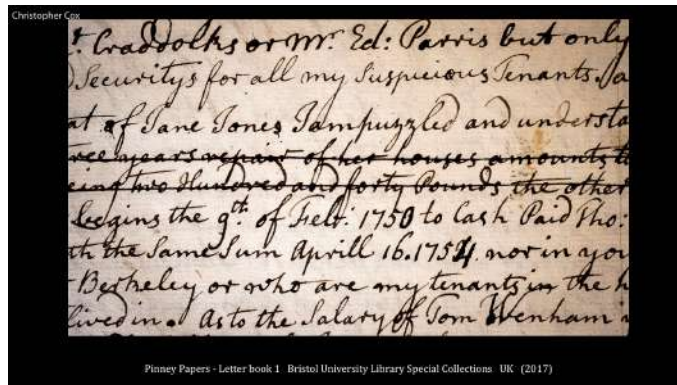 Christopher Cox
r. Craddolks or Mr. Ed: Parris but only
Securitys for all my Suspicious Tenants. a
at of Jane Jones I am puzzled and understa
ree years repair of her houses amounts t
eing two Hundred and forty Pounds the other
begins the 9th. of Febr: 1750 to Cash Paid Tho:
th the Same Sum Aprill 16. 1754 nor in you
Berkeley or who are my tenants in the h
lived in. As to the Salary of Tom Wenham
Pinney Papers - Letter book 1 Bristol University Library Special Collections UK (2017)